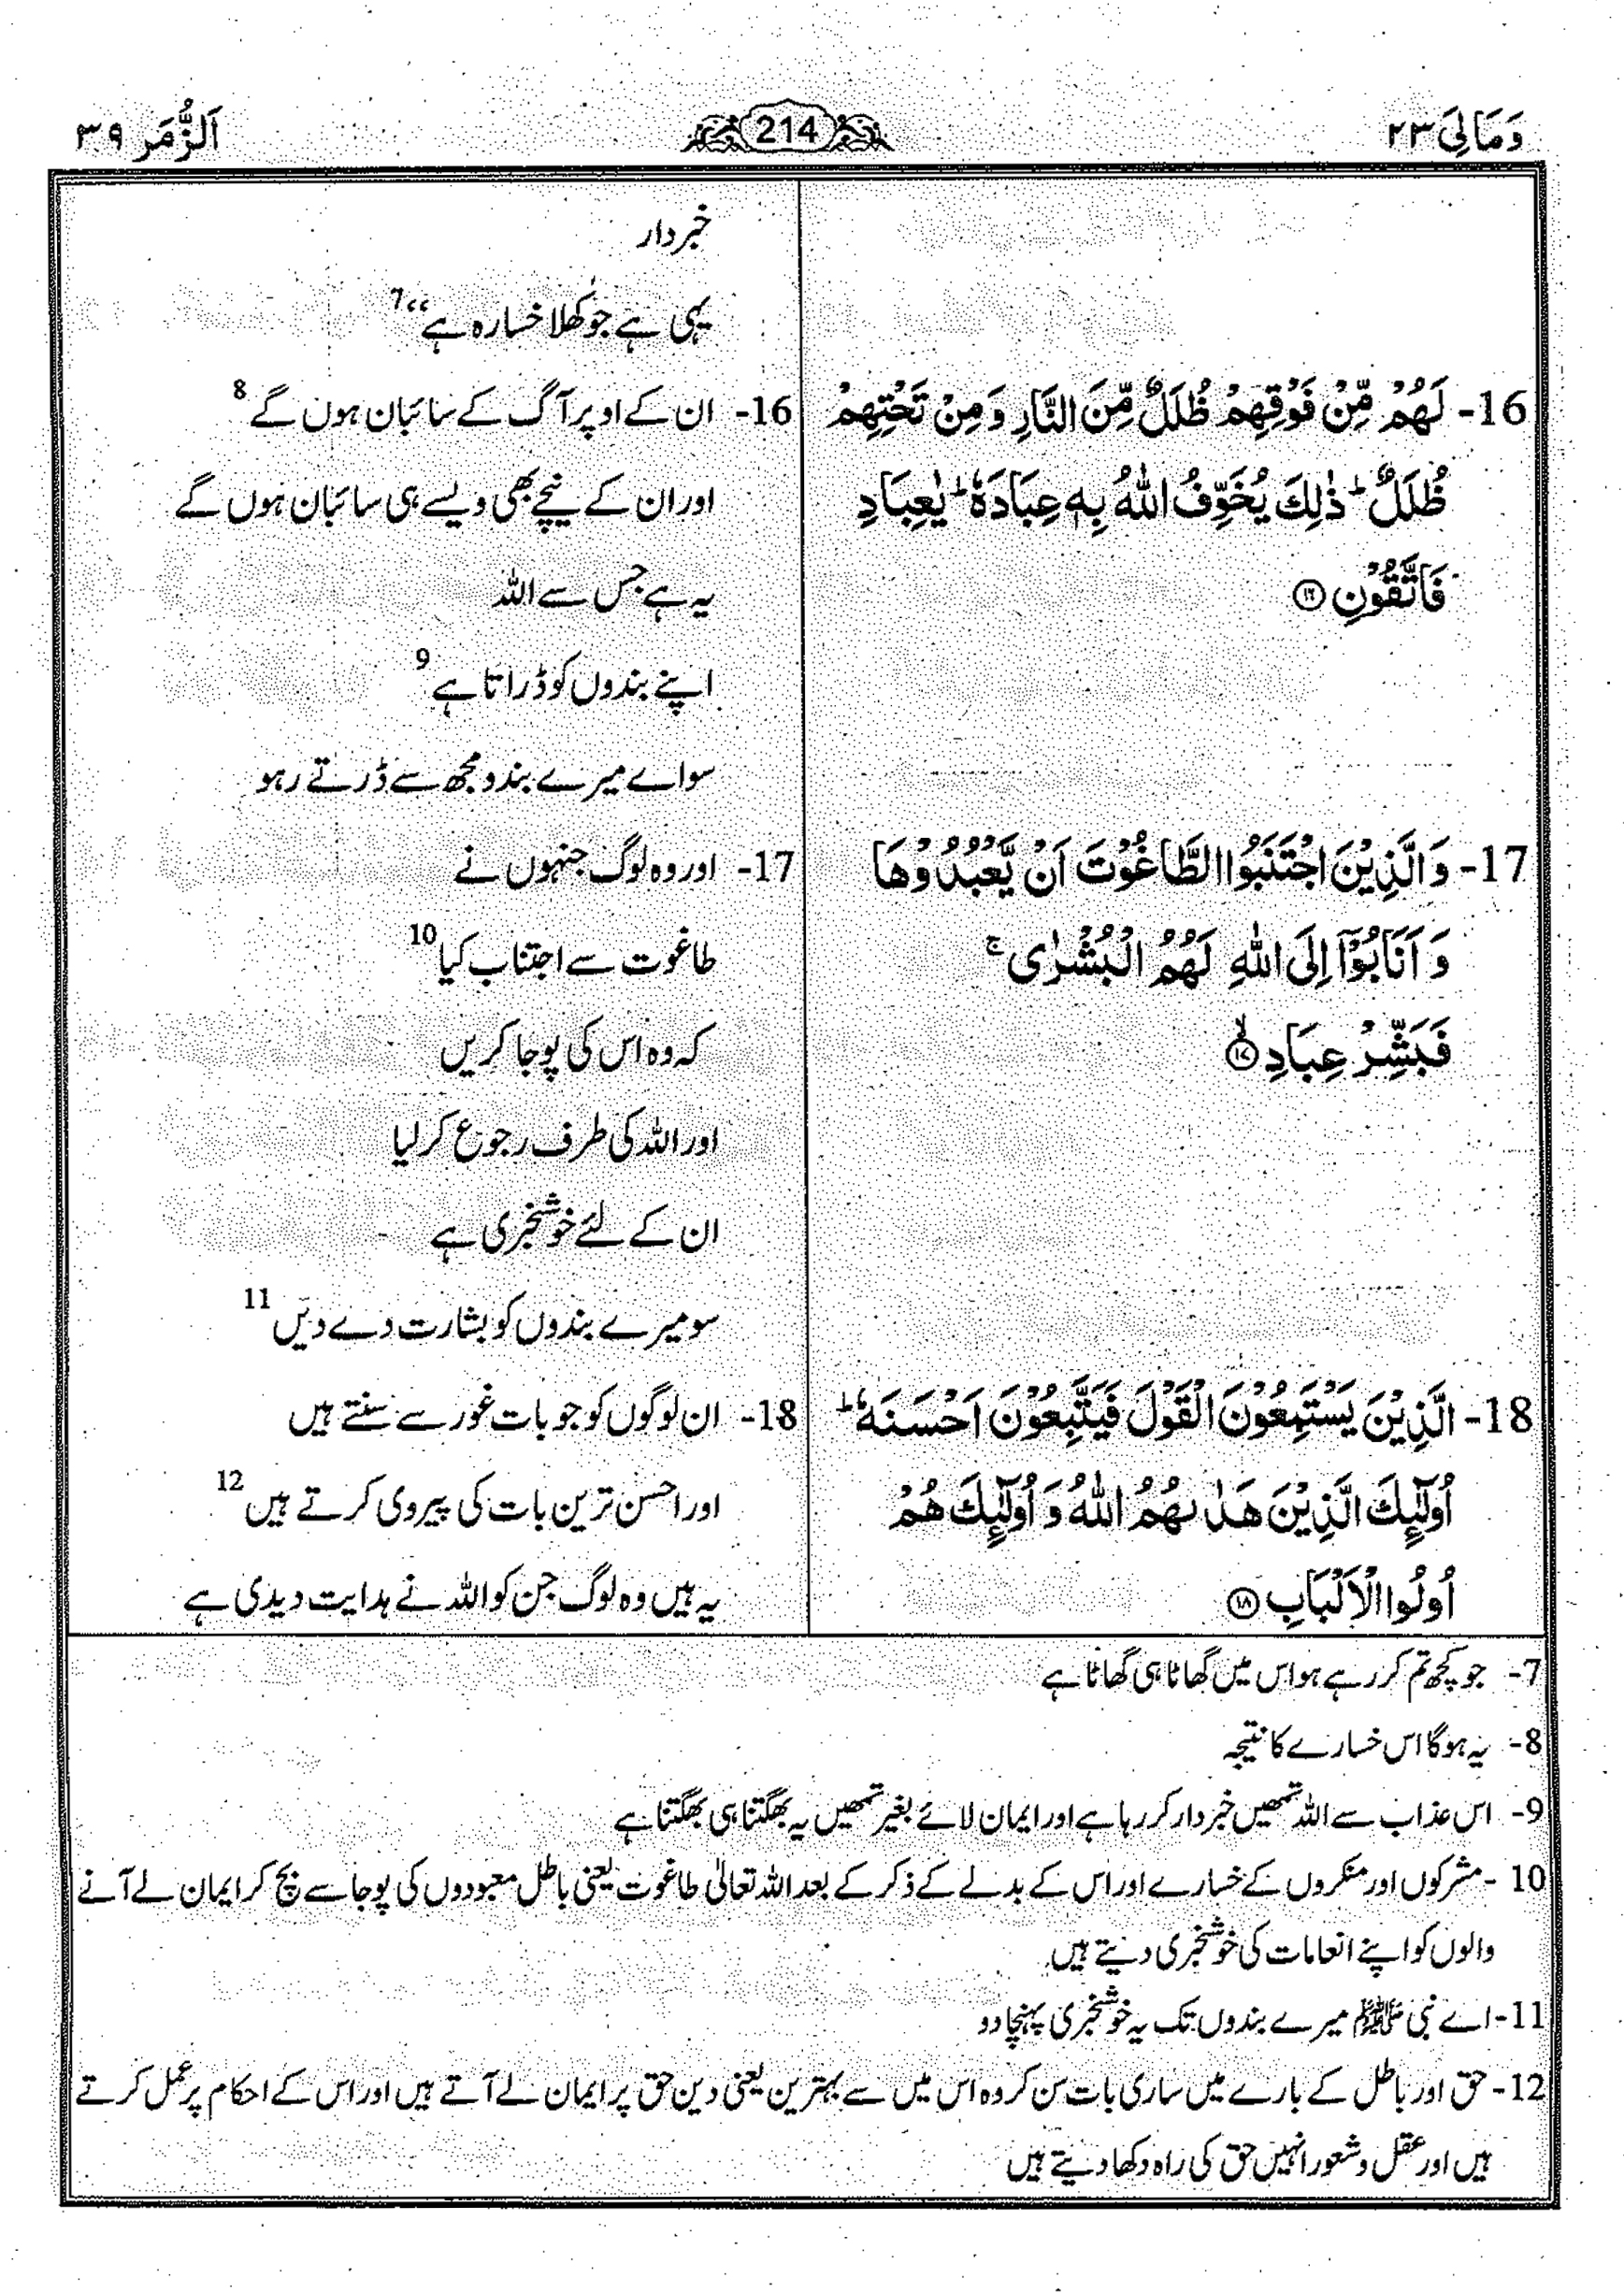 وَمَالِیَ ۲۳
214
اَلزُّمَر ۳۹
خبردار
یہی ہے جو کُھلا خسارہ ہے“ 7
16- لَهُمْ مِّنْ فَوْقِهِمْ ظُلَلٌ مِّنَ النَّارِ وَمِنْ تَحْتِهِمْ
ظُلَلٌ ؕ ذٰلِكَ يُخَوِّفُ اللّٰهُ بِهٖ عِبَادَهٗ ؕ يٰعِبَادِ
فَاتَّقُوْنِ ﴿۱۶﴾
16- ان کے اوپر آگ کے سائبان ہوں گے 8
اور ان کے نیچے بھی ویسے ہی سائبان ہوں گے
یہ ہے جس سے اللہ
اپنے بندوں کو ڈراتا ہے 9
سو اے میرے بندو مجھ سے ڈرتے رہو
17- وَالَّذِيْنَ اجْتَنَبُوا الطَّاغُوْتَ اَنْ يَّعْبُدُوْهَا
وَ اَنَابُوْۤا اِلَى اللّٰهِ لَهُمُ الْبُشْرٰى ۚ
فَبَشِّرْ عِبَادِ ۙ﴿۱۷﴾
17- اور وہ لوگ جنہوں نے
طاغوت سے اجتناب کیا 10
کہ وہ اس کی پوجا کریں
اور اللہ کی طرف رجوع کر لیا
ان کے لئے خوشخبری ہے
سو میرے بندوں کو بشارت دے دیں 11
18- الَّذِيْنَ يَسْتَمِعُوْنَ الْقَوْلَ فَيَتَّبِعُوْنَ اَحْسَنَهٗ ؕ
اُولٰٓئِكَ الَّذِيْنَ هَدٰىهُمُ اللّٰهُ وَ اُولٰٓئِكَ هُمْ
اُولُوا الْاَلْبَابِ ﴿۱۸﴾
18- ان لوگوں کو جو بات غور سے سنتے ہیں
اور احسن ترین بات کی پیروی کرتے ہیں 12
یہ ہیں وہ لوگ جن کو اللہ نے ہدایت دیدی ہے
7- جو کچھ تم کر رہے ہو اس میں گھاٹا ہی گھاٹا ہے
8- یہ ہوگا اس خسارے کا نتیجہ
9- اس عذاب سے اللہ تمھیں خبردار کر رہا ہے اور ایمان لائے بغیر تمھیں یہ بھگتنا ہی بھگتنا ہے
10- مشرکوں اور منکروں کے خسارے اور اس کے بدلے کے ذکر کے بعد اللہ تعالیٰ طاغوت یعنی باطل معبودوں کی پوجا سے بچ کر ایمان لے آنے
والوں کو اپنے انعامات کی خوشخبری دیتے ہیں
11- اے نبی ﷺ میرے بندوں تک یہ خوشخبری پہنچا دو
12- حق اور باطل کے بارے میں ساری بات سن کر وہ اس میں سے بہترین یعنی دین حق پر ایمان لے آتے ہیں اور اس کے احکام پر عمل کرتے
ہیں اور عقل و شعور انہیں حق کی راہ دکھا دیتے ہیں